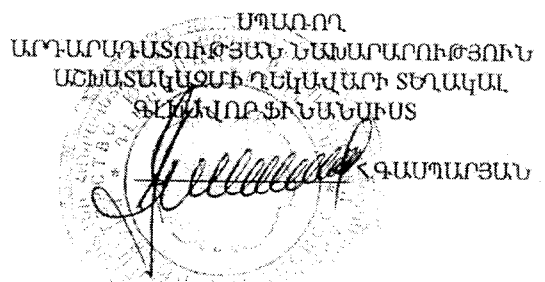 ՍՊԱՌՈՂ
ԱՐԴԱՐԱԴԱՏՈՒԹՅԱՆ ՆԱԽԱՐԱՐՈՒԹՅՈՒՆ
ԱՇԽԱՏԱԿԱԶՄԻ ՂԵԿԱՎԱՐԻ ՏԵՂԱԿԱԼ
ԳԼԽԱՎՈՐ ՖԻՆԱՆՍԻՍՏ
Հ ԳԱՍՊԱՐՅԱՆ